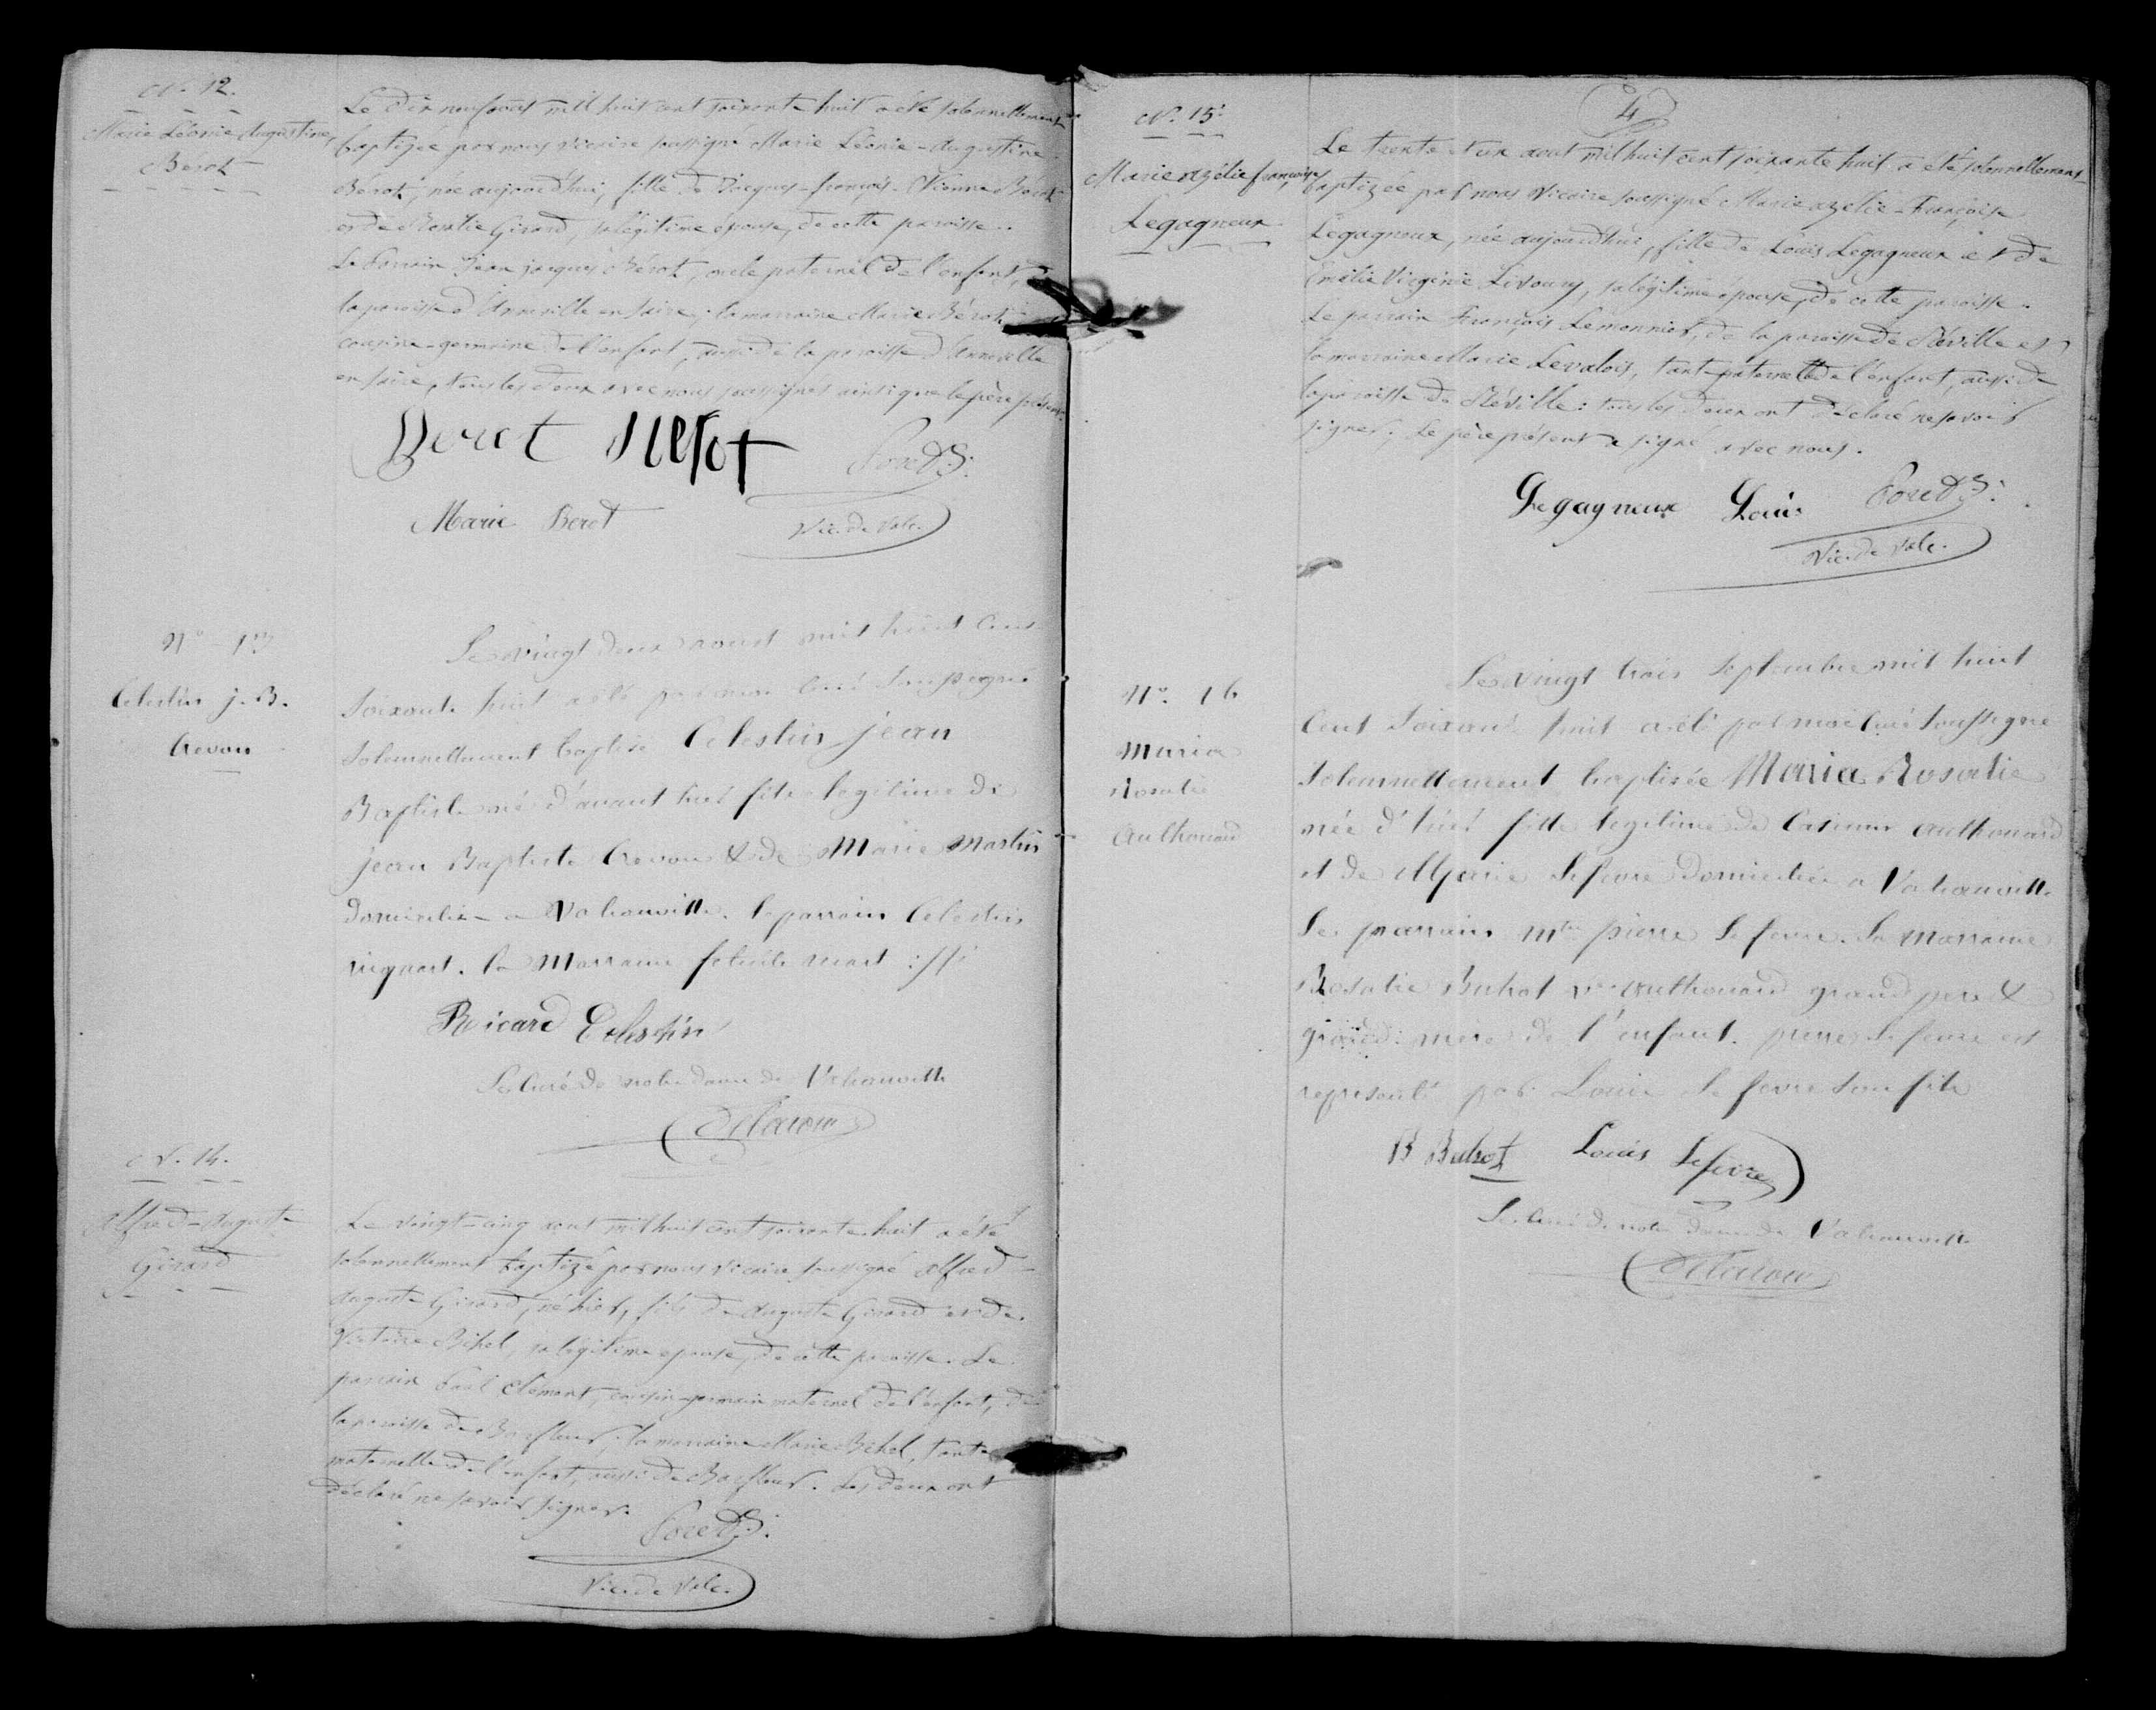 N. 12.
Marie Léonie Augustine,
Berot
Le dix neuf aout mil huit cent soixante huit a été solennellement
baptizée par nous vicaire soussigné Marie Léonie-Augustine
Bérot, née aujourd'hui, fille de Jacques-françois-Etienne Bérot
et de Rosalie Girard, sa légitime épouse, de cette paroisse.
Le Parrain Jean jacques Bérot, oncle paternel de l'enfant, de
la paroisse d'Anneville en saire; la marraine Marie Bérot
cousine-germaine de l'enfant, aussi de la paroisse d'Anneville
en saire, tous les deux avec nous soussignés ainsi que le père présent.
Berot Berot
Marie Berot
Vic. de Valc.
N° 13
Celestin j. B.
Crevon
Le vingt deux aout mil huit cent
soixante huit a été par moi curé soussigné
solennellement baptisé Celestin jean
Baptiste né d'avant hier fils legitime de
jean Baptiste Crevon & de Marie Martin
domiciliés a Valcanville. le parrain Celestin
la Marraine felicité
Ricard Celestin
Le curé de notre dame de Valcanville
N. 14.
Alfred-Auguste
Girard
Le vingt-cinq aout mil huit cent soixante huit a été
solennellement baptizé par nous vicaire soussigné Alfred-
Auguste Girard, né hier, fils de Auguste Girard et de
Victoire Bihel, sa légitime épouse, de cette paroisse. Le
parrain Paul Clément, cousin-germain maternel de l'enfant, de
la paroisse de Barfleur; la marraine Marie Bihel, tante
maternelle de l'enfant, aussi de Barfleur. Les deux ont
déclaré ne savoir signer.
Vic. de Valc.
4
N. 15.
Marie azélie françoise
Legagneux
Le trente et un aout mil huit cent soixante huit a été solennellement
baptizée par nous vicaire soussigné Marie azelie-Françoise
Legagneux, née aujourd'hui, fille de Louis Legagneux et de
Emélie Virginie Livoury, sa légitime épouse, de cette paroisse.
Le parrain François Lemonnier, de la paroisse de Réville et
la marraine Marie Levalois, tante paternelle de l'enfant, aussi de
la paroisse de Réville: tous les deux ont déclaré ne savoir
signer. Le père présent a signé avec nous.
Legagneux Louis
Vic. de Valc.
N°. 16
Maria
Rosalie
Authouard
Le vingt trois Septembre mil huit
cent soixante huit a été par moi curé soussigné
solennellement baptisée Maria Rosalie
née d'hier fille legitime de Casimir Authouard
et de Marie Lefevre domiciliés a Valcanville
Le parrain pierre Lefevre. La Marraine
Rosalie Buhot Authouard grand pere &
grand mere de l'enfant. pierre Lefevre est
représenté par Louis Lefevre son fils
R Buhot Louis Lefevre
Le curé de notre dame de Valcanville